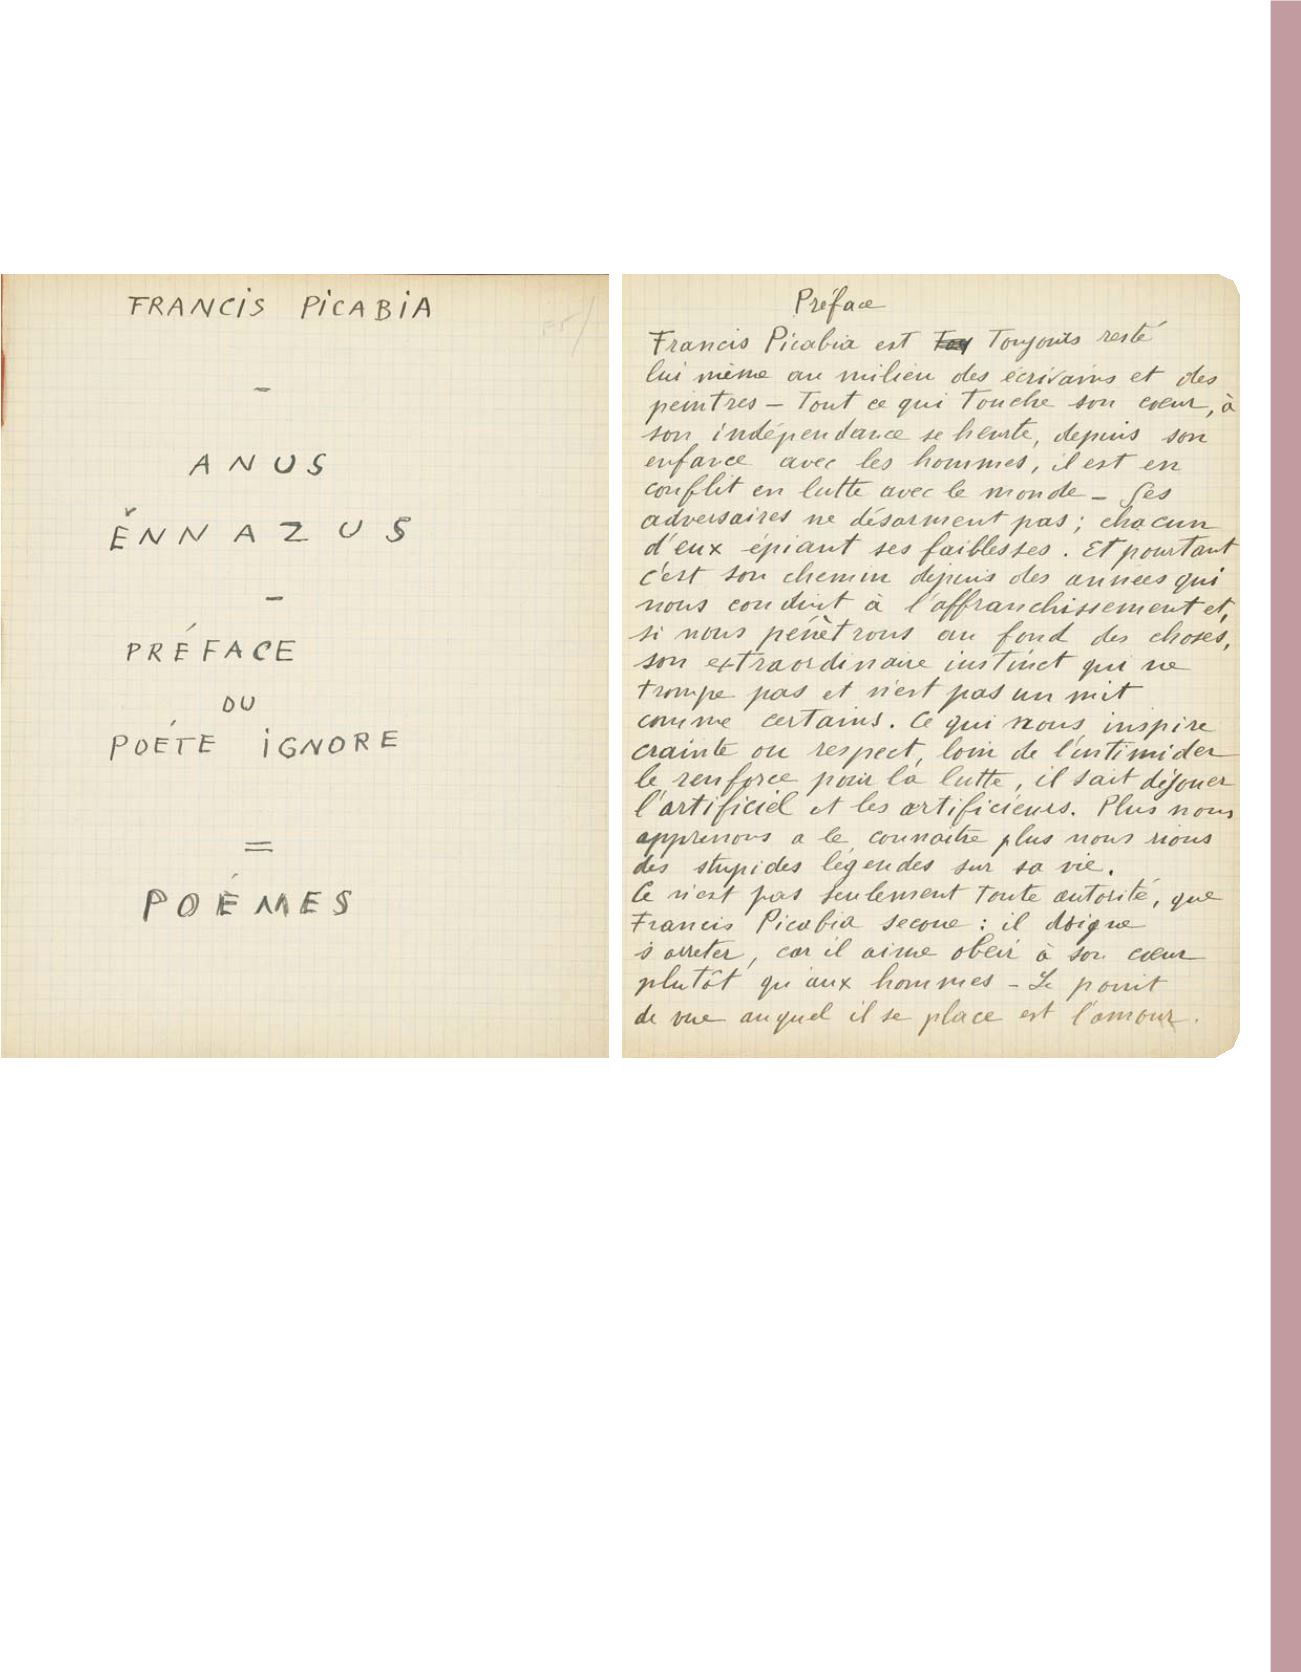 FRANCiS PiCABiA
–
ANUS
ĚNNAZUS
–
PRÉFACE
DU
POÉTE iGNORE
=
POÉMES
Préface
Francis Picabia est Toujours resté
lui même au milieu des écrivains et des
peintres – Tout ce qui Touche son coeur, à
son indépendance se heurte, depuis son
enfance avec les hommes, il est en
conflit en lutte avec le monde – Ses
adversaires ne désarment pas ; chacun
d'eux épiant ses faiblesses. Et pourtant
c'est son chemin depuis des années qui
nous conduit à l'affranchissement et,
si nous pénètrons au fond des choses,
son extraordinaire instinct qui ne
trompe pas et n'est pas un mit
comme certains. Ce qui nous inspire
crainte ou respect, loin de l'intimider
le renforce pour la lutte, il sait déjouer
l'artificiel et les artificieurs. Plus nous
apprenons a le connaitre plus nous rions
des stupides légendes sur sa vie.
Ce n'est pas seulement Toute autorité, que
Francis Picabia secoue : il
s'arreter, car il aime obeir à son cœur
plutôt qu'aux hommes – Le point
de vue auquel il se place est l'amour.